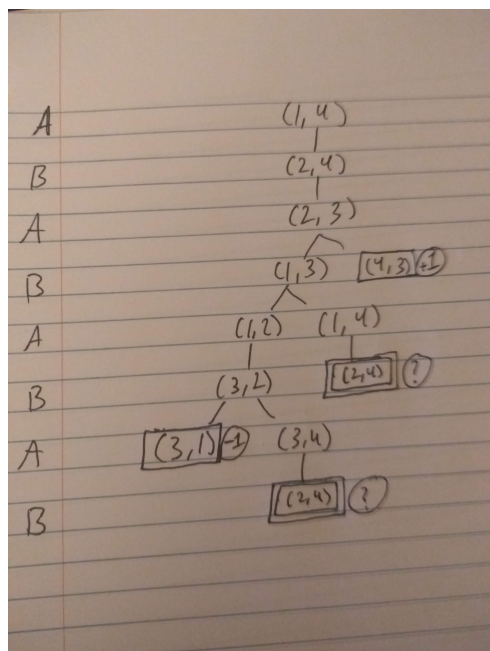 A (1,4)
B (2,4)
A (2,3)
B (1,3) (4,3) +1
A (1,2) (1,4)
B (3,2) (2,4) ?
A (3,1) -1 (3,4)
B (2,4) ?